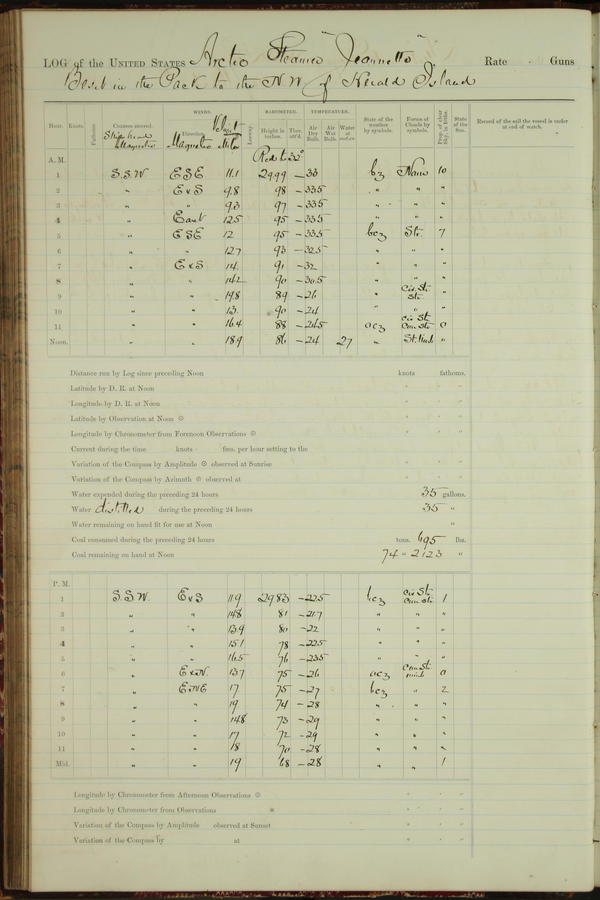 LOG of the UNITED STATES Arctic Steamer "Jeannette" Rate Guns
Beset in the Pack to the N.W. of Herald Island
WINDS. BAROMETER. TEMPERATURE.
Hour. Knots. Fathoms. Courses steered. Ship's head Magnetic Direction. Magnetic Veloc'y Miles Leeway. Height in inches. Ther. att'd. Air Dry Bulb. Air Wet Bulb. Water at surface. State of the weather by symbols. Forms of Clouds by symbols. Prop. of clear Sky, in 10ths. State of the Sea. Record of the sail the vessel is under at end of watch.
A. M. Red to 32°
1 S.S.W ESE 11.1 2999 -33 bz None 10
2 " ExS 9.8 98 -33.5 " " "
3 " " 9.3 97 -33.5 " " "
4 " East 12.5 95 -33.5 " " "
5 " ESE 12 95 -33.5 bcz Str. 7
6 " " 12.7 93 -32.5 " " "
7 " ExS 14 91 -32 " " "
8 " " 14.2 90 -30.5 " " "
9 " " 14.8 89 -26 " Cir. St. Str. "
10 " " 13 90 -24 " " "
11 " " 16.4 88 -24.5 ocz Cir St Cum. Str 0
Noon. " " 18.9 86 -24 27 " "
Distance run by Log since preceding Noon knots fathoms.
Latitude by D. R. at Noon
Longitude by D. R. at Noon
Latitude by Observation at Noon
Longitude by Chronometer from Forenoon Observations
Current during the time knots fms. per hour setting to the
Variation of the Compass by Amplitude observed at Sunrise
Variation of the Compass by Azimuth observed at
Water expended during the preceding 24 hours 35 gallons.
Water distilled during the preceding 24 hours 35 "
Water remaining on hand fit for use at Noon "
Coal consumed during the preceding 24 hours tons. 695 lbs.
Coal remaining on hand at Noon 74 " 2123 "
P. M.
1 S.S.W. ExS 11.9 2983 -22.5 bcz Cir St. Cum. Str. 1
2 " " 14.8 81 -21.7 " " "
3 " " 13.9 80 -22 " " "
4 " " 15.1 78 -22.5 " " "
5 " " 16.5 76 -23.5 " " "
6 " ExN. 13.7 75 -26 ocz Cum. St. 0
7 " ENE 17 75 -27 bcz " 2
8 " " 19 74 -28 " " "
9 " " 14.8 73 -29 " " "
10 " " 17 72 -29 " " "
11 " " 18 70 -28 " " "
Mid. " " 19 68 -28 " " 1
Longitude by Chronometer from Afternoon Observations
Longitude by Chronometer from Observations
Variation of the Compass by Amplitude observed at Sunset
Variation of the Compass by at